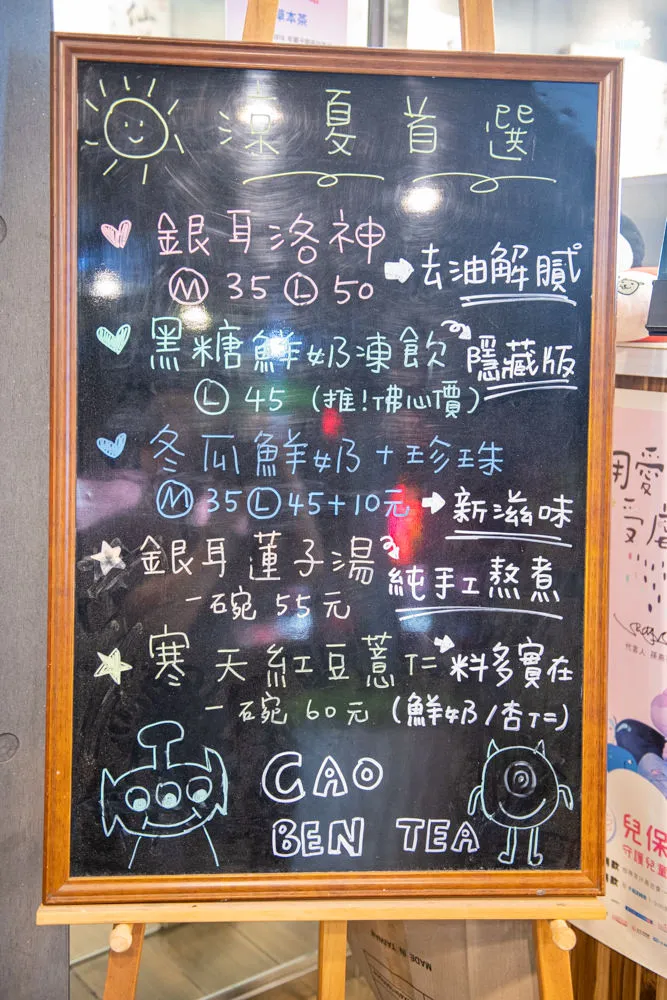 草本茶
涼夏首選
銀耳洛神
Ⓜ 35 Ⓛ 50
去油解膩
黑糖鮮奶凍飲
隱藏版
Ⓛ 45 (推!佛心價)
冬瓜鮮奶+珍珠
Ⓜ 35 Ⓛ 45+10元
新滋味
銀耳蓮子湯
純手工熬煮
一碗 55元
寒天紅豆薏仁
料多實在
一碗 60元 (鮮奶/杏仁)
CAO
BEN TEA
用愛
受虐
兒保
守護兒童
MADE IN TAIWAN